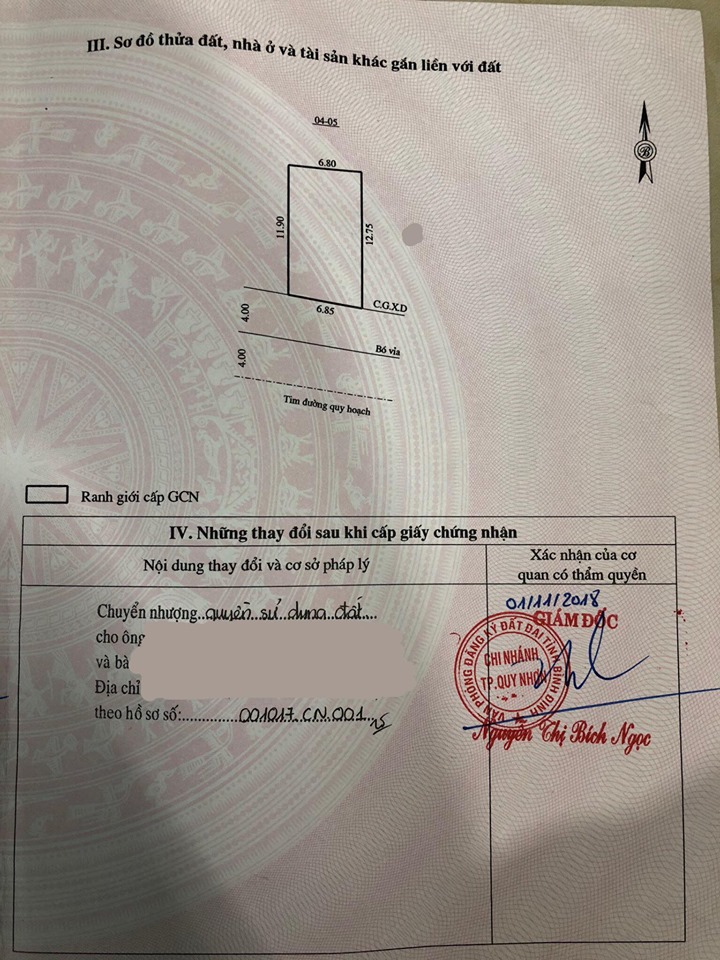 III. Sơ đồ thửa đất, nhà ở và tài sản khác gắn liền với đất
04-05
B
6.80
11.90
12.75
6.85
C.G.X.D
4.00
Bó vỉa
4.00
Tim đường quy hoạch
Ranh giới cấp GCN
IV. Những thay đổi sau khi cấp giấy chứng nhận
Nội dung thay đổi và cơ sở pháp lý
Xác nhận của cơ
quan có thẩm quyền
Chuyển nhượng quyền sử dụng đất
cho ông
và bà
Địa chỉ
theo hồ sơ số: 001017.CN.001
01/11/2018
GIÁM ĐỐC
VĂN PHÒNG ĐĂNG KÝ ĐẤT ĐAI TỈNH BÌNH ĐỊNH
CHI NHÁNH
TP. QUY NHƠN
Nguyễn Thị Bích Ngọc